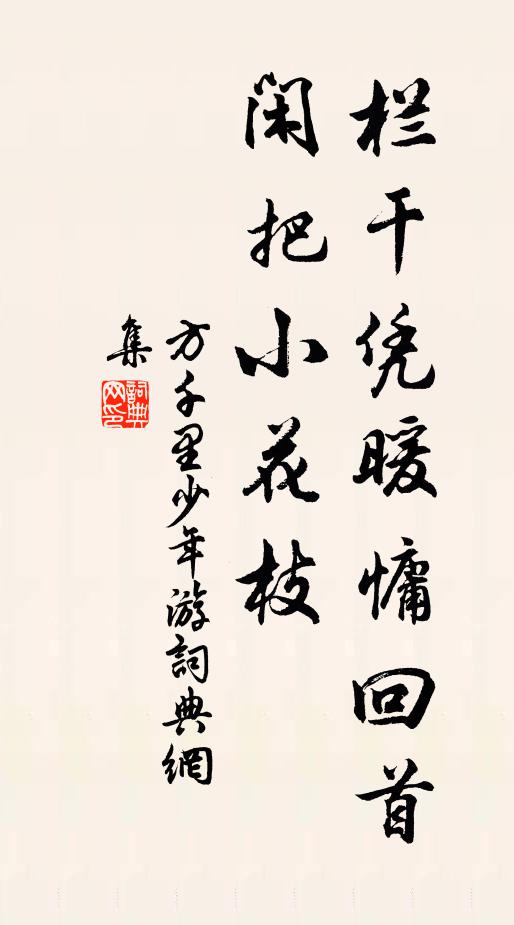 栏干凭暖慵回首
闲把小花枝
方千里少年游詞典網
集
詞典
网印